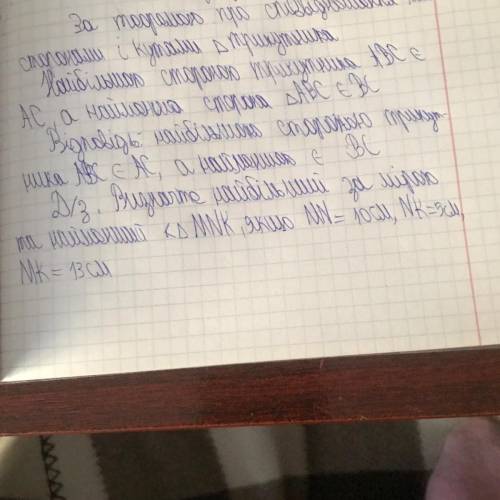 За теоремою про співвідношення між
сторонами і кутами △ трикутника
Найбільшою стороною трикутника ABC є
AC, а найменша сторона △ABC є BC
Відповідь: найбільшою стороною трикут-
ника ABC є AC, а найменшою є BC
Д/з. Визначте найбільший за мірою
та найменший <△ MNK, якщо MN = 10см, NK=5см,
MK = 13см